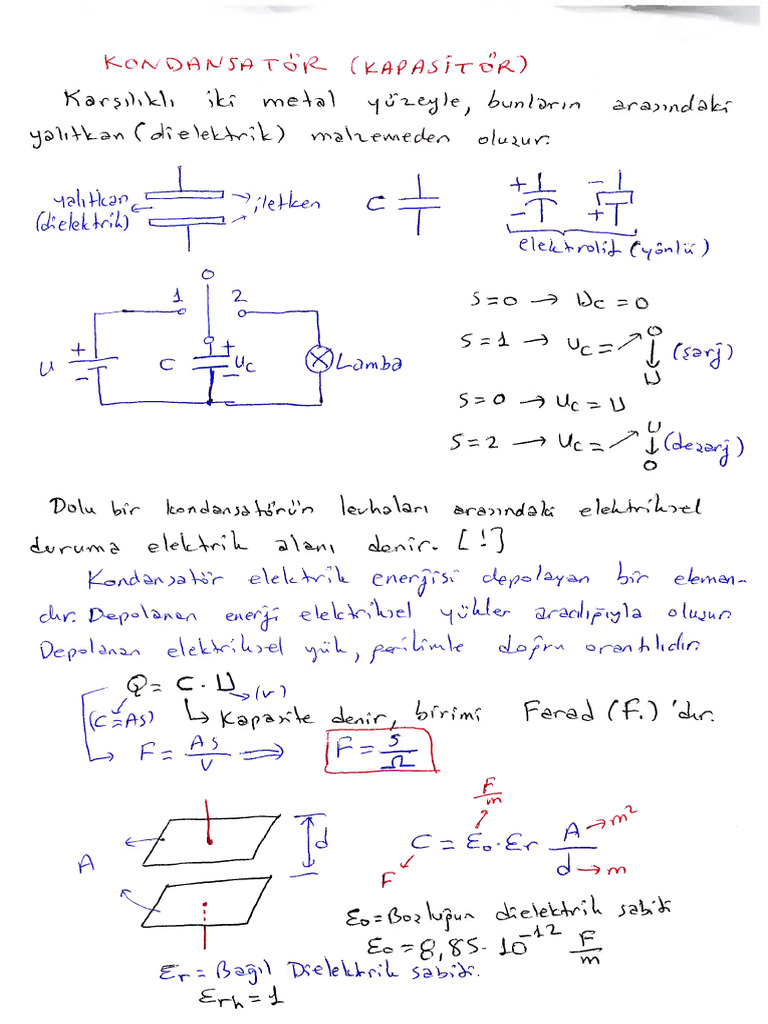 KONDANSATÖR (KAPASİTÖR)
Karşılıklı iki metal yüzeyle, bunların arasındaki
yalıtkan (dielektrik) malzemeden oluşur.
yalıtkan
(dielektrik)
iletken
C
+ -
- +
elektrolit (yönlü)
1 2
U + -
C
+ Uc -
Lamba
S=0 → Uc = 0
S=1 → Uc = 0 ↓ U (şarj)
S=0 → Uc = U
S=2 → Uc = U ↓ 0 (deşarj)
Dolu bir kondansatörün levhaları arasındaki elektriksel
duruma elektrik alanı denir. [!]
Kondansatör elektrik energisi depolayan bir eleman-
dır. Depolanan energi elektriksel yükler aracılığıyla oluşur.
Depolanan elektriksel yük, gerilimle doğru orantılıdır.
Q = C . U → (V)
(C=As) ↳ Kapasite denir, birimi Farad (F.) 'dır.
F = As/V ⟹ F = s/Ω
A
d
F/m
C = ε0 . εr A/d
→ m²
→ m
F
ε0 = Boşluğun dielektrik sabiti
ε0 = 8,85 . 10⁻¹² F/m
εr = Bağıl Dielektrik sabiti.
εrh = 1